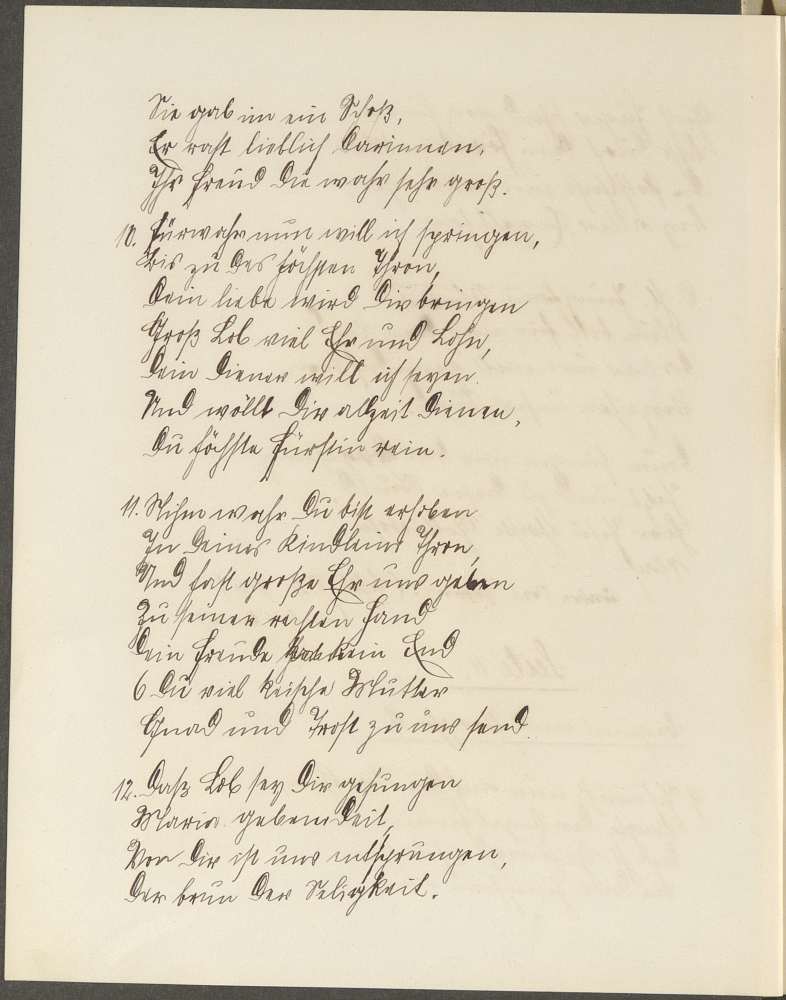 Sie gab im ein Schoß,
Er rast lieblich Darinnen,
Ihr Freud Die wahr sehr groß.
10. Fürwahr nun will ich springen,
Bis zu Des höchsten Thron,
Dein liebe wird Dir bringen
Groß Lob viel Ehr und Lohn,
Dein Diener will ich seyen
Und wöllt Dir allzeit Dienen,
Du höchste Fürstin rein.
11. Nihm wahr Du bist erhoben
In Deines Kindleins Thron,
Und hast große Ehr uns geben
Zu seiner rechten Hand
Dein Freude hat kein End
O Du viel keische Mutter
Gnad und Trost zu uns send.
12. Daß Lob sey Dir gesungen
Maria gebeneideit,
Von Dir ist uns entsprungen,
Der brun Der Seligkeit.